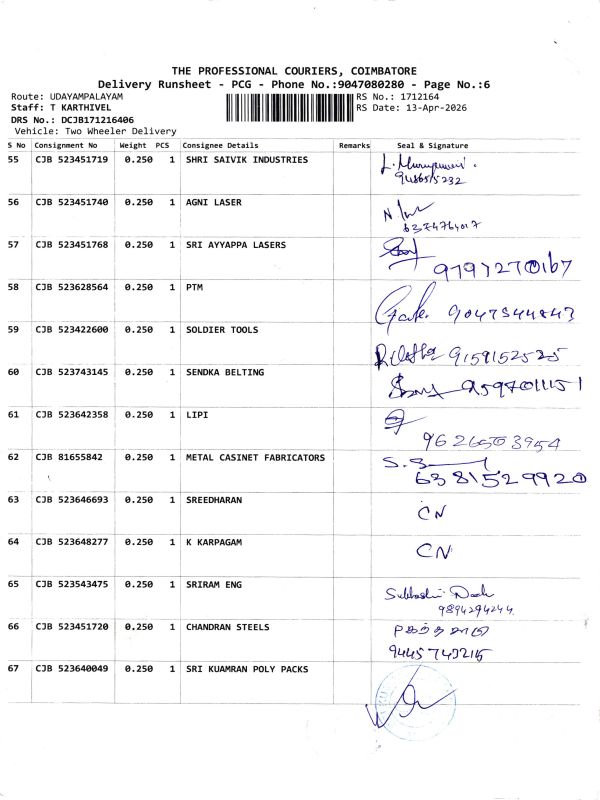 THE PROFESSIONAL COURIERS, COIMBATORE
Delivery Runsheet - PCG - Phone No.:9047080280 - Page No.:6
Route: UDAYAMPALAYAM RS No.: 1712164
Staff: T KARTHIVEL RS Date: 13-Apr-2026
DRS No.: DCJB171216406
Vehicle: Two Wheeler Delivery
S No Consignment No Weight PCS Consignee Details Remarks Seal & Signature
55 CJB 523451719 0.250 1 SHRI SAIVIK INDUSTRIES
56 CJB 523451740 0.250 1 AGNI LASER
6374764017
57 CJB 523451768 0.250 1 SRI AYYAPPA LASERS
9797270167
58 CJB 523628564 0.250 1 PTM
59 CJB 523422600 0.250 1 SOLDIER TOOLS 9159152525
60 CJB 523743145 0.250 1 SENDKA BELTING 9597011151
61 CJB 523642358 0.250 1 LIPI
9626503954
62 CJB 81655842 0.250 1 METAL CASINET FABRICATORS
6381529920
63 CJB 523646693 0.250 1 SREEDHARAN CN
64 CJB 523648277 0.250 1 K KARPAGAM CN
65 CJB 523543475 0.250 1 SRIRAM ENG
9894294244
66 CJB 523451720 0.250 1 CHANDRAN STEELS
9445743215
67 CJB 523640049 0.250 1 SRI KUAMRAN POLY PACKS